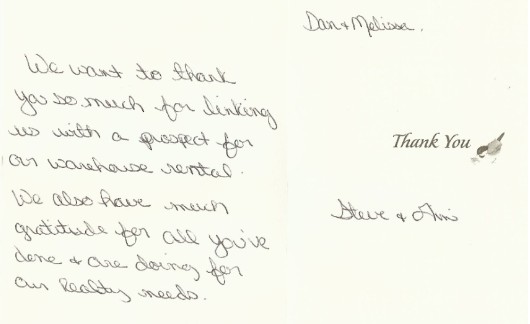 We want to thank
you so much for linking
us with a prospect for
our warehouse rental.
We also have much
gratitude for all you've
done & are doing for
our Realty needs.
Dan & Melissa.
Thank You
Steve &